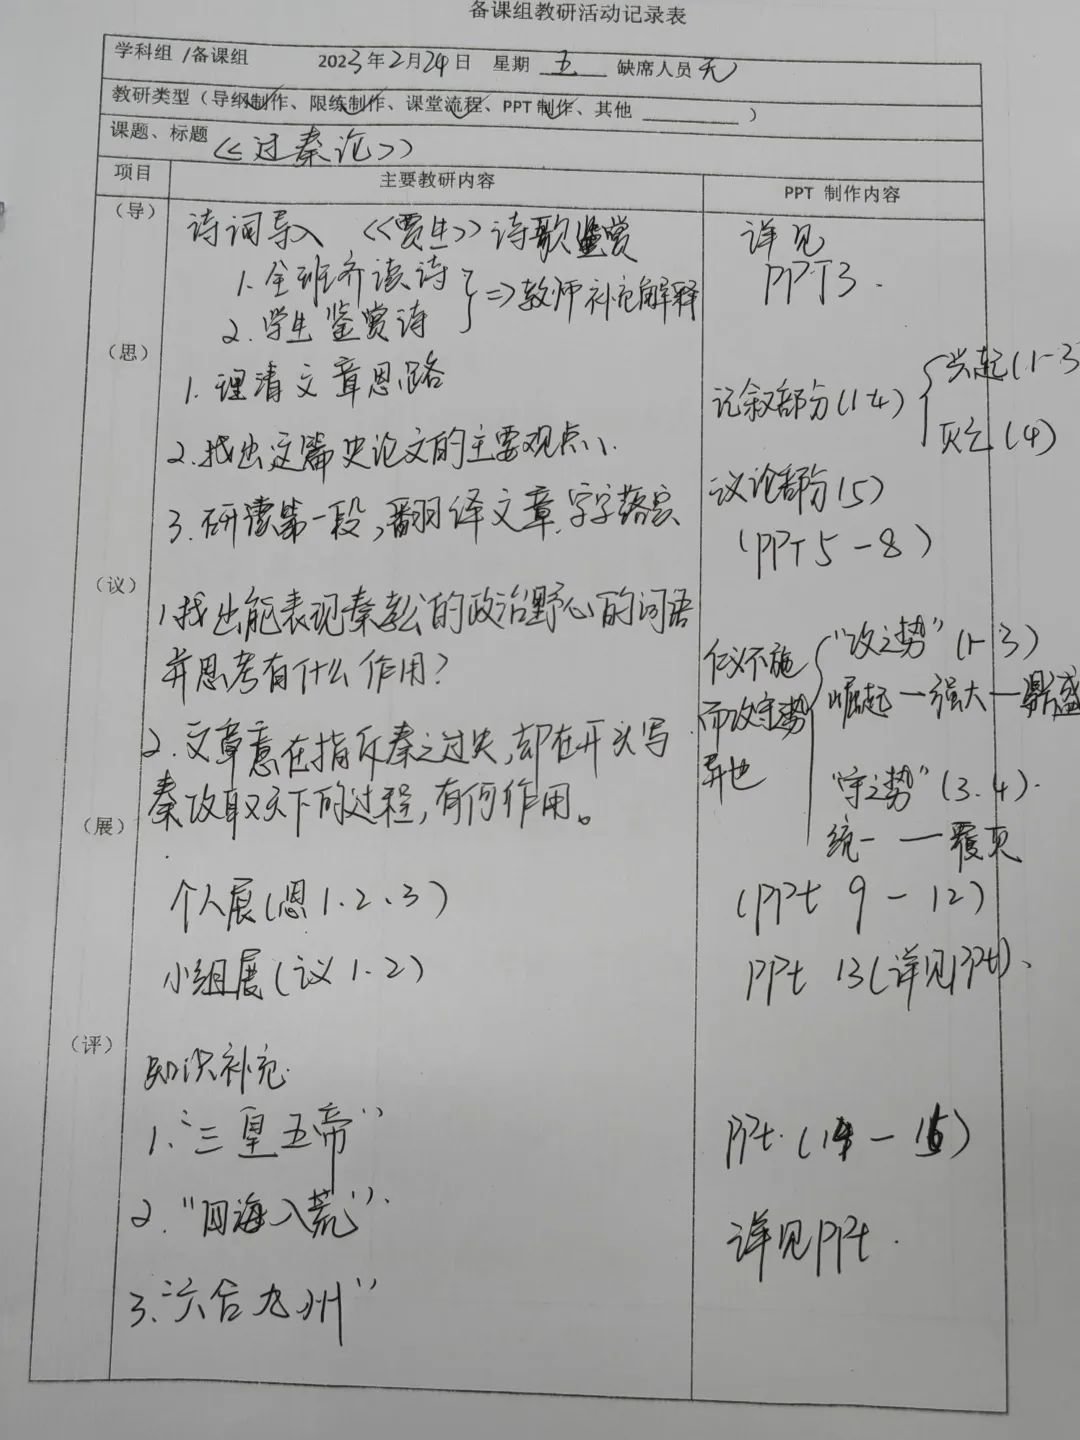 备课组教研活动记录表
学科组 /备课组 2023年2月24日 星期 五 缺席人员 无
教研类型（导纲制作、限练制作、课堂流程、PPT 制作、其他 ________ ）
课题、标题 《过秦论》
项目 主要教研内容 PPT 制作内容
（导） 诗词导入 《贾生》诗歌鉴赏 详见
1. 全班齐读诗 PPT3.
⇒教师补充解释
2. 学生鉴赏诗
（思） 1. 理清文章思路 兴起(1-3
记叙部分(1-4)
灭亡(4)
2. 找出这篇史论文的主要观点、 议论部分(5)
3. 研读第一段，翻译文章，字字落实 (PPT5-8)
（议） 1 找出能表现秦孝公的政治野心的词语 “攻之势”(1-3)
并思考有什么作用？ 仁义不施
崛起一强大一鼎盛
2. 文章意在指斥秦之过失，却在开头写 而攻守之势
异也 “守之势”(3.4).
秦攻取天下的过程，有何作用。
（展） 统一 — 覆灭
个人展(思1、2、3) (PPt 9-12)
小组展(议1.2) PPt 13(详见PPt)、
（评） 知识补充
1. “三皇五帝” PPt. (14-15)
2. “四海八荒”.
详见PPt.
3. “六合九州”